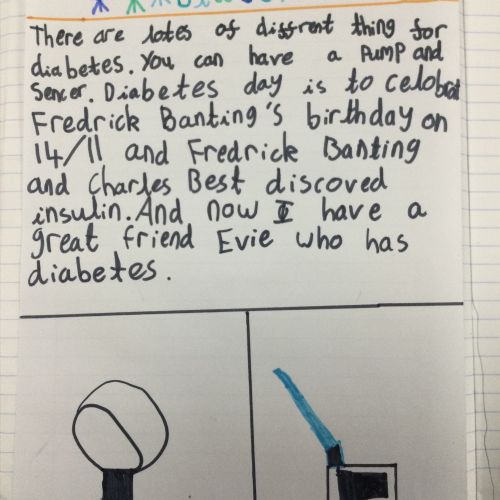 There are lotes of diffrent thing for
diabetes. You can have a pump and
Sencer. Diabetes day is to celobrat
Fredrick Banting's birthday on
14/11 and Fredrick Banting
and Charles Best discoved
insulin. And now I have a
great friend Evie who has
diabetes.